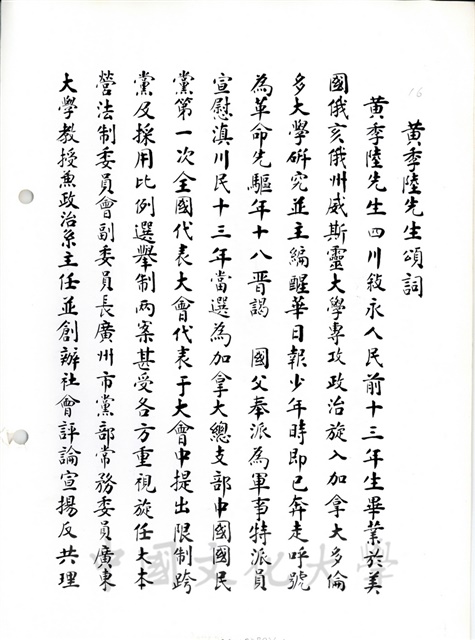 16
黃季陸先生頌詞
黃季陸先生四川敍永人民前十三年生畢業於美
國俄亥俄州威斯靈大學專攻政治旋入加拿大多倫
多大學研究並主編醒華日報少年時即已奔走呼號
為革命先驅年十八晋謁　國父奉派為軍事特派員
宣慰滇川民十三年當選為加拿大總支部中國國民
黨第一次全國代表大會代表于大會中提出限制跨
黨及採用比例選舉制兩案甚受各方重視旋任大本
營法制委員會副委員長廣州市黨部常務委員廣東
大學教授兼政治系主任並創辦社會評論宣揚反共理
中國文化大學